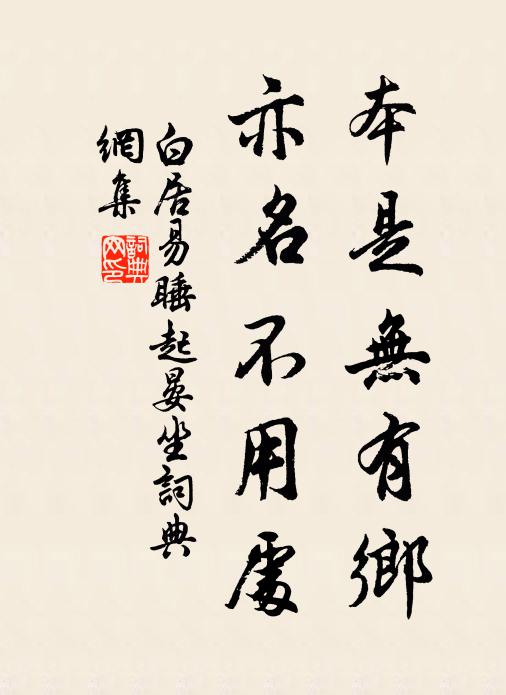 本是無有鄉
亦名不用處
白居易睡起晏坐詞典
網集
詞典网印